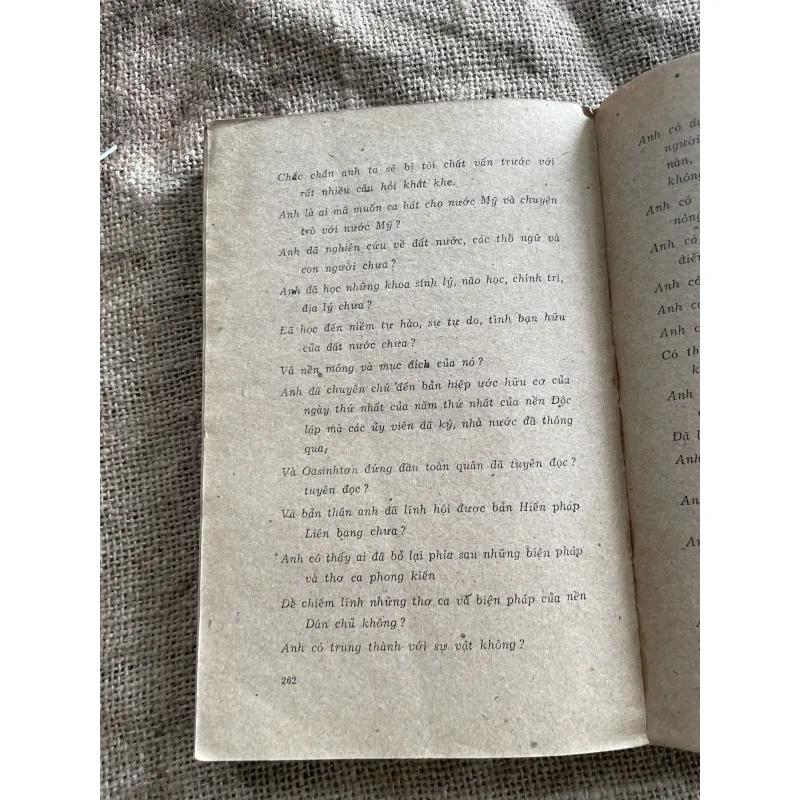 Chắc chắn anh ta sẽ bị tôi chất vấn trước với
rất nhiều câu hỏi khắt khe.
Anh là ai mà muốn ca hát cho nước Mỹ và chuyện
trò với nước Mỹ?
Anh đã nghiên cứu về đất nước, các thổ ngữ và
con người chưa?
Anh đã học những khoa sinh lý, não học, chính trị,
địa lý chưa?
Đã học đến niềm tự hào, sự tự do, tình bạn hữu
của đất nước chưa?
Và nền móng và mục đích của nó?
Anh đã chuyên chú đến bản hiệp ước hữu cơ của
ngày thứ nhất của năm thứ nhất của nền Độc
lập mà các ủy viên đã ký, nhà nước đã thông
qua,
Và Oasinhtơn đứng đầu toàn quân đã tuyên đọc?
tuyên đọc?
Và bản thân anh đã lĩnh hội được bản Hiến pháp
Liên bang chưa?
Anh có thấy ai đã bỏ lại phía sau những biện pháp
và thơ ca phong kiến
Để chiếm lĩnh những thơ ca và biện pháp của nền
Dân chủ không?
Anh có trung thành với sự vật không?
262
Anh có
người
nàn,
không
Anh có
nông
Anh có
điều
Anh có
Anh có
Anh
Có th
k
Anh
Đã l
Anh
An
An